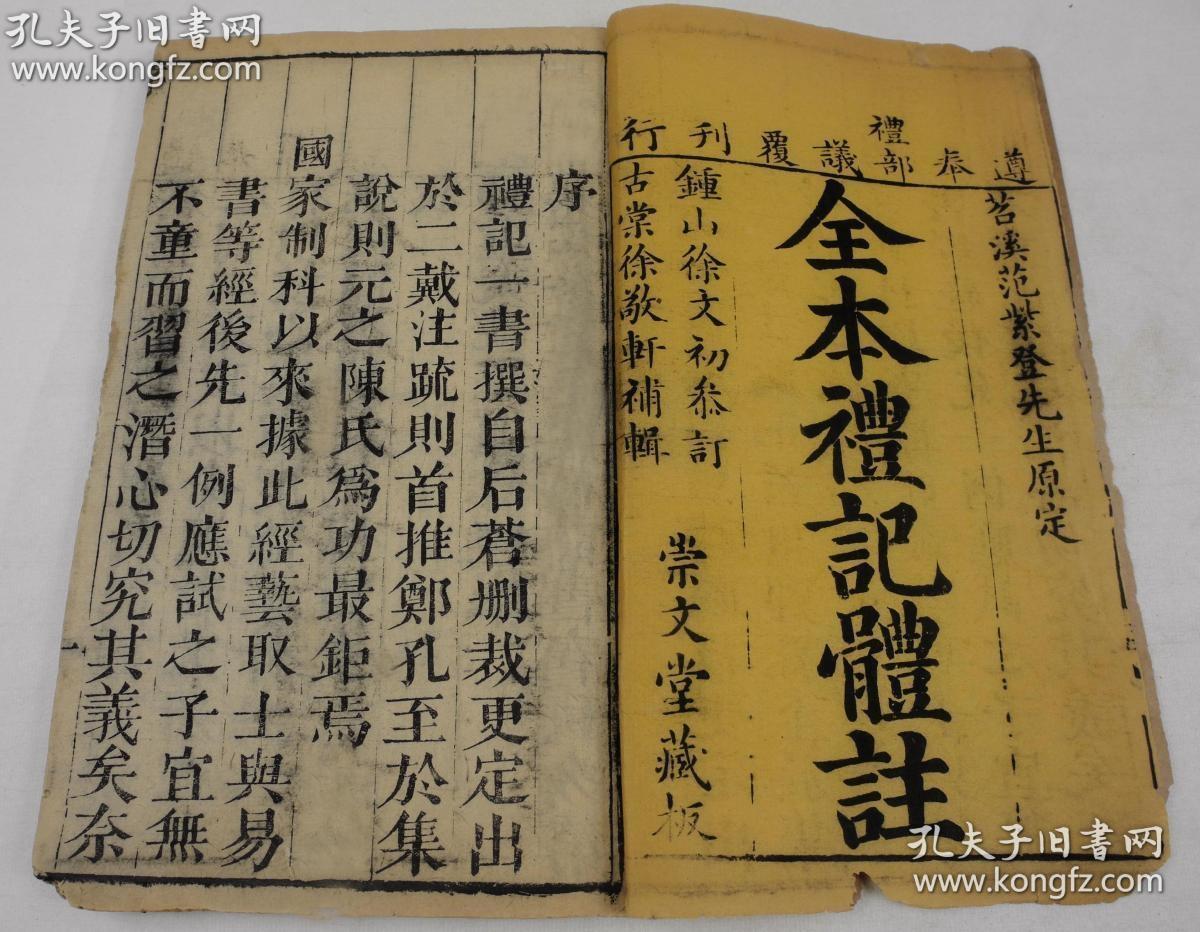 孔夫子旧书网
www.kongfz.com
遵奉禮部議覆刊行
苕溪范紫登先生原定
全本禮記體註
鍾山徐文初叅訂
古棠徐敬軒補輯
崇文堂藏板
序
禮記一書撰自后蒼刪裁更定出
於二戴注疏則首推鄭孔至於集
說則元之陳氏為功最鉅焉
國家制科以來據此經藝取士與易
書等經後先一例應試之子宜無
不童而習之潛心切究其義矣奈
一
孔夫子旧书网
www.kongfz.com